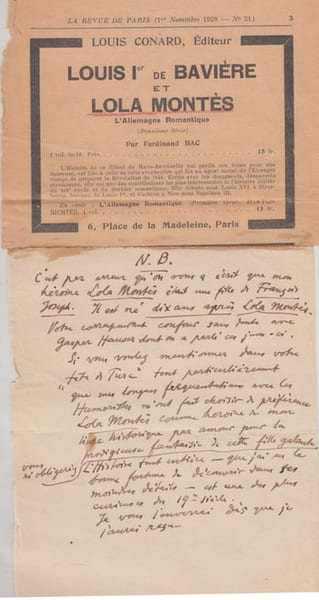 LA REVUE DE PARIS (1er Novembre 1928 — No 21) 3
LOUIS CONARD, Éditeur
LOUIS Ier DE BAVIÈRE
ET
LOLA MONTÈS
L'Allemagne Romantique
(Deuxième Série)
Par Ferdinand BAC
1 vol. in-18. Prix 15 fr.
En vente : L'Allemagne Romantique (Première Série).
15 fr.
6, Place de la Madeleine, Paris
N. B.
C'est par erreur qu'on vous a écrit que mon
héroïne Lola Montès était une fille de François
Joseph. Il est né dix ans après Lola Montès.
Votre correspondant confond sans doute avec
Gaspar Hauser dont on a parlé ces jours-ci.
Si vous voulez mentionner dans votre
"que mes longues fréquentations avec les
Humanistes m'ont fait choisir de préférence
Lola Montès comme héroïne de mon
historique par amour pour la
prodigieuse fantaisie de cette fille galante
vous
m'obligerez
L'histoire tout entière — que j'ai eu la
bonne fortune de découvrir dans ses
moindres détails — est une des plus
curieuses du 19e siècle.
Je vous l'enverrai dès que je
l'aurai reçu